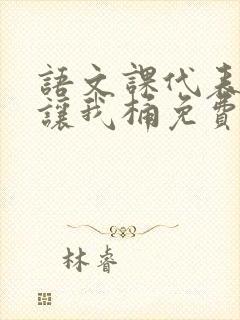 語文課代表
讓我桶免費
林睿